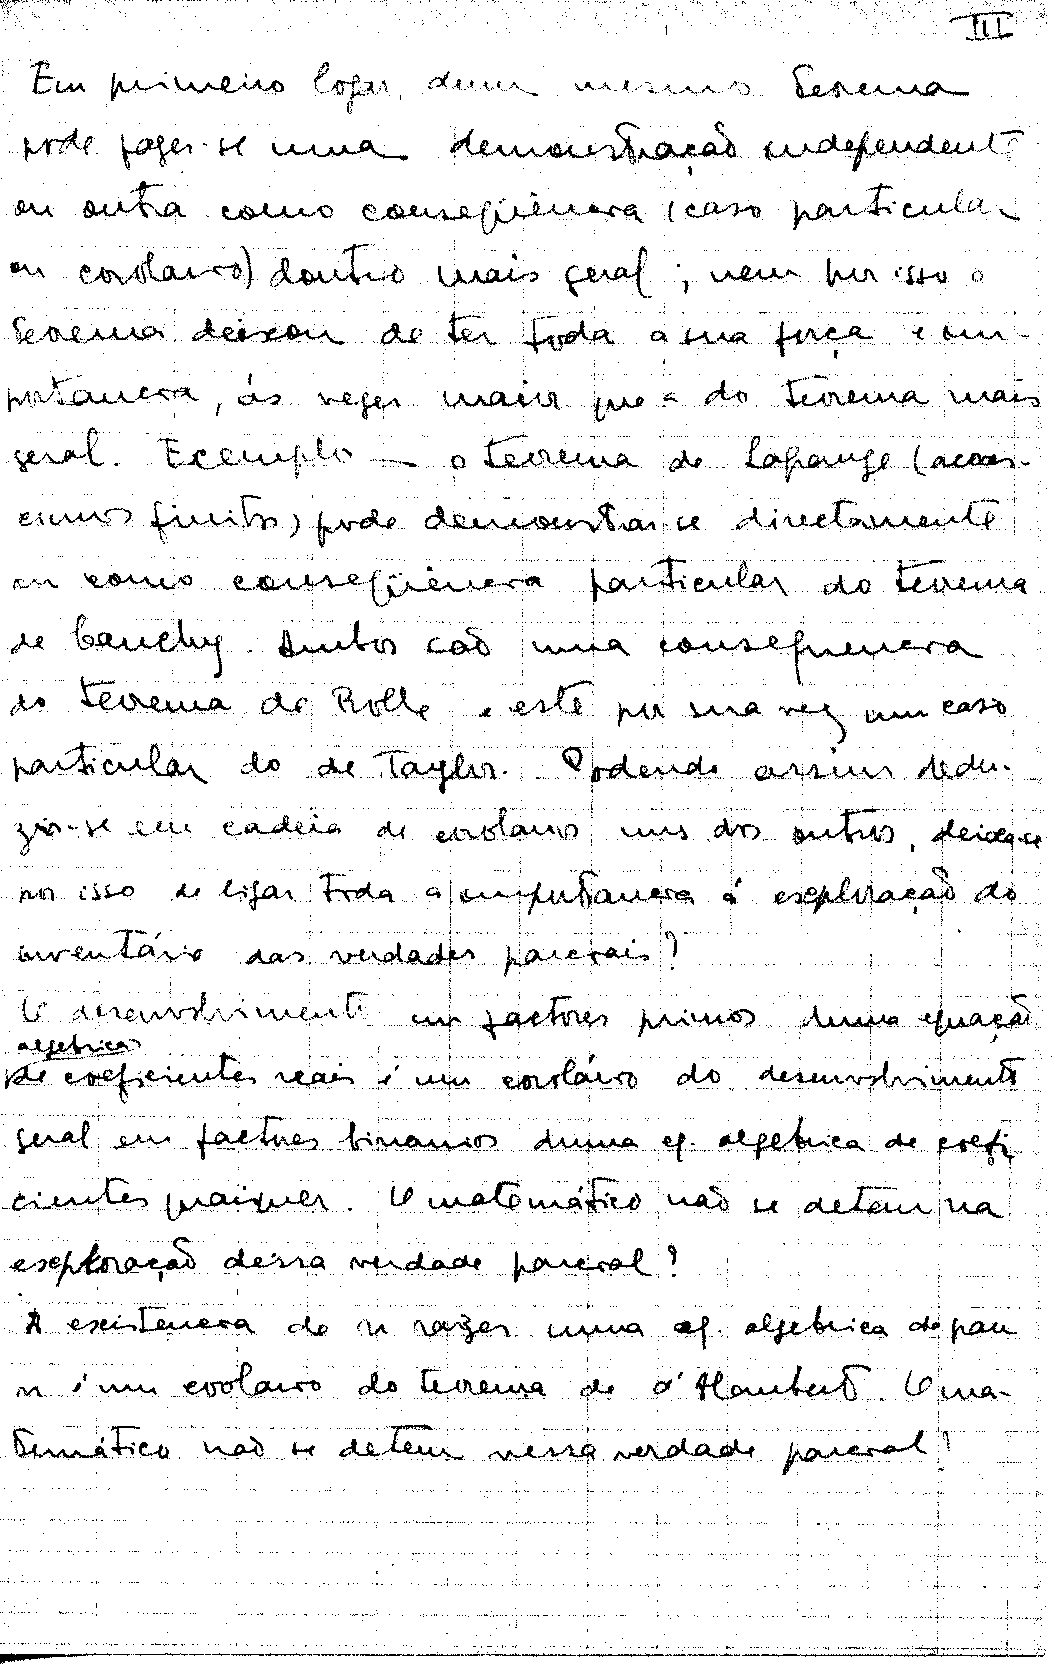 III
Em primeiro logar, dum mesmo teorema
pode fazer-se uma demonstração independente
ou outra como conseqüencia (caso particular
ou corolario) doutro mais geral; nem por isso o
teorema deixou de ter toda a sua força e im-
portancia, ás vezes maior que a do teorema mais
geral. Exemplo — o teorema de Lagrange (acres-
cimos finitos) pode demonstrar-se directamente
ou como conseqüencia particular do teorema
de Cauchy. Ambos são uma consequencia
do teorema de Rolle e este por sua vez um caso
particular do de Taylor. Podendo assim dedu-
zir-se em cadeia de corolarios uns dos outros, deixa-se
por isso de ligar toda a importancia á exploração do
inventário das verdades parciais?
O desenvolvimento em factores primos duma equação
algebrica
de coeficientes reais é um corolário do desenvolvimento
geral em factores binarios duma eq. algebrica de coefi
cientes quaisquer. O matemático não se detem na
exploração dessa verdade parcial?
A existencia de n raizes numa eq. algebrica de grau
n é um corolario do teorema de d'Alambert. O ma-
temático não se detem nessa verdade parcial?